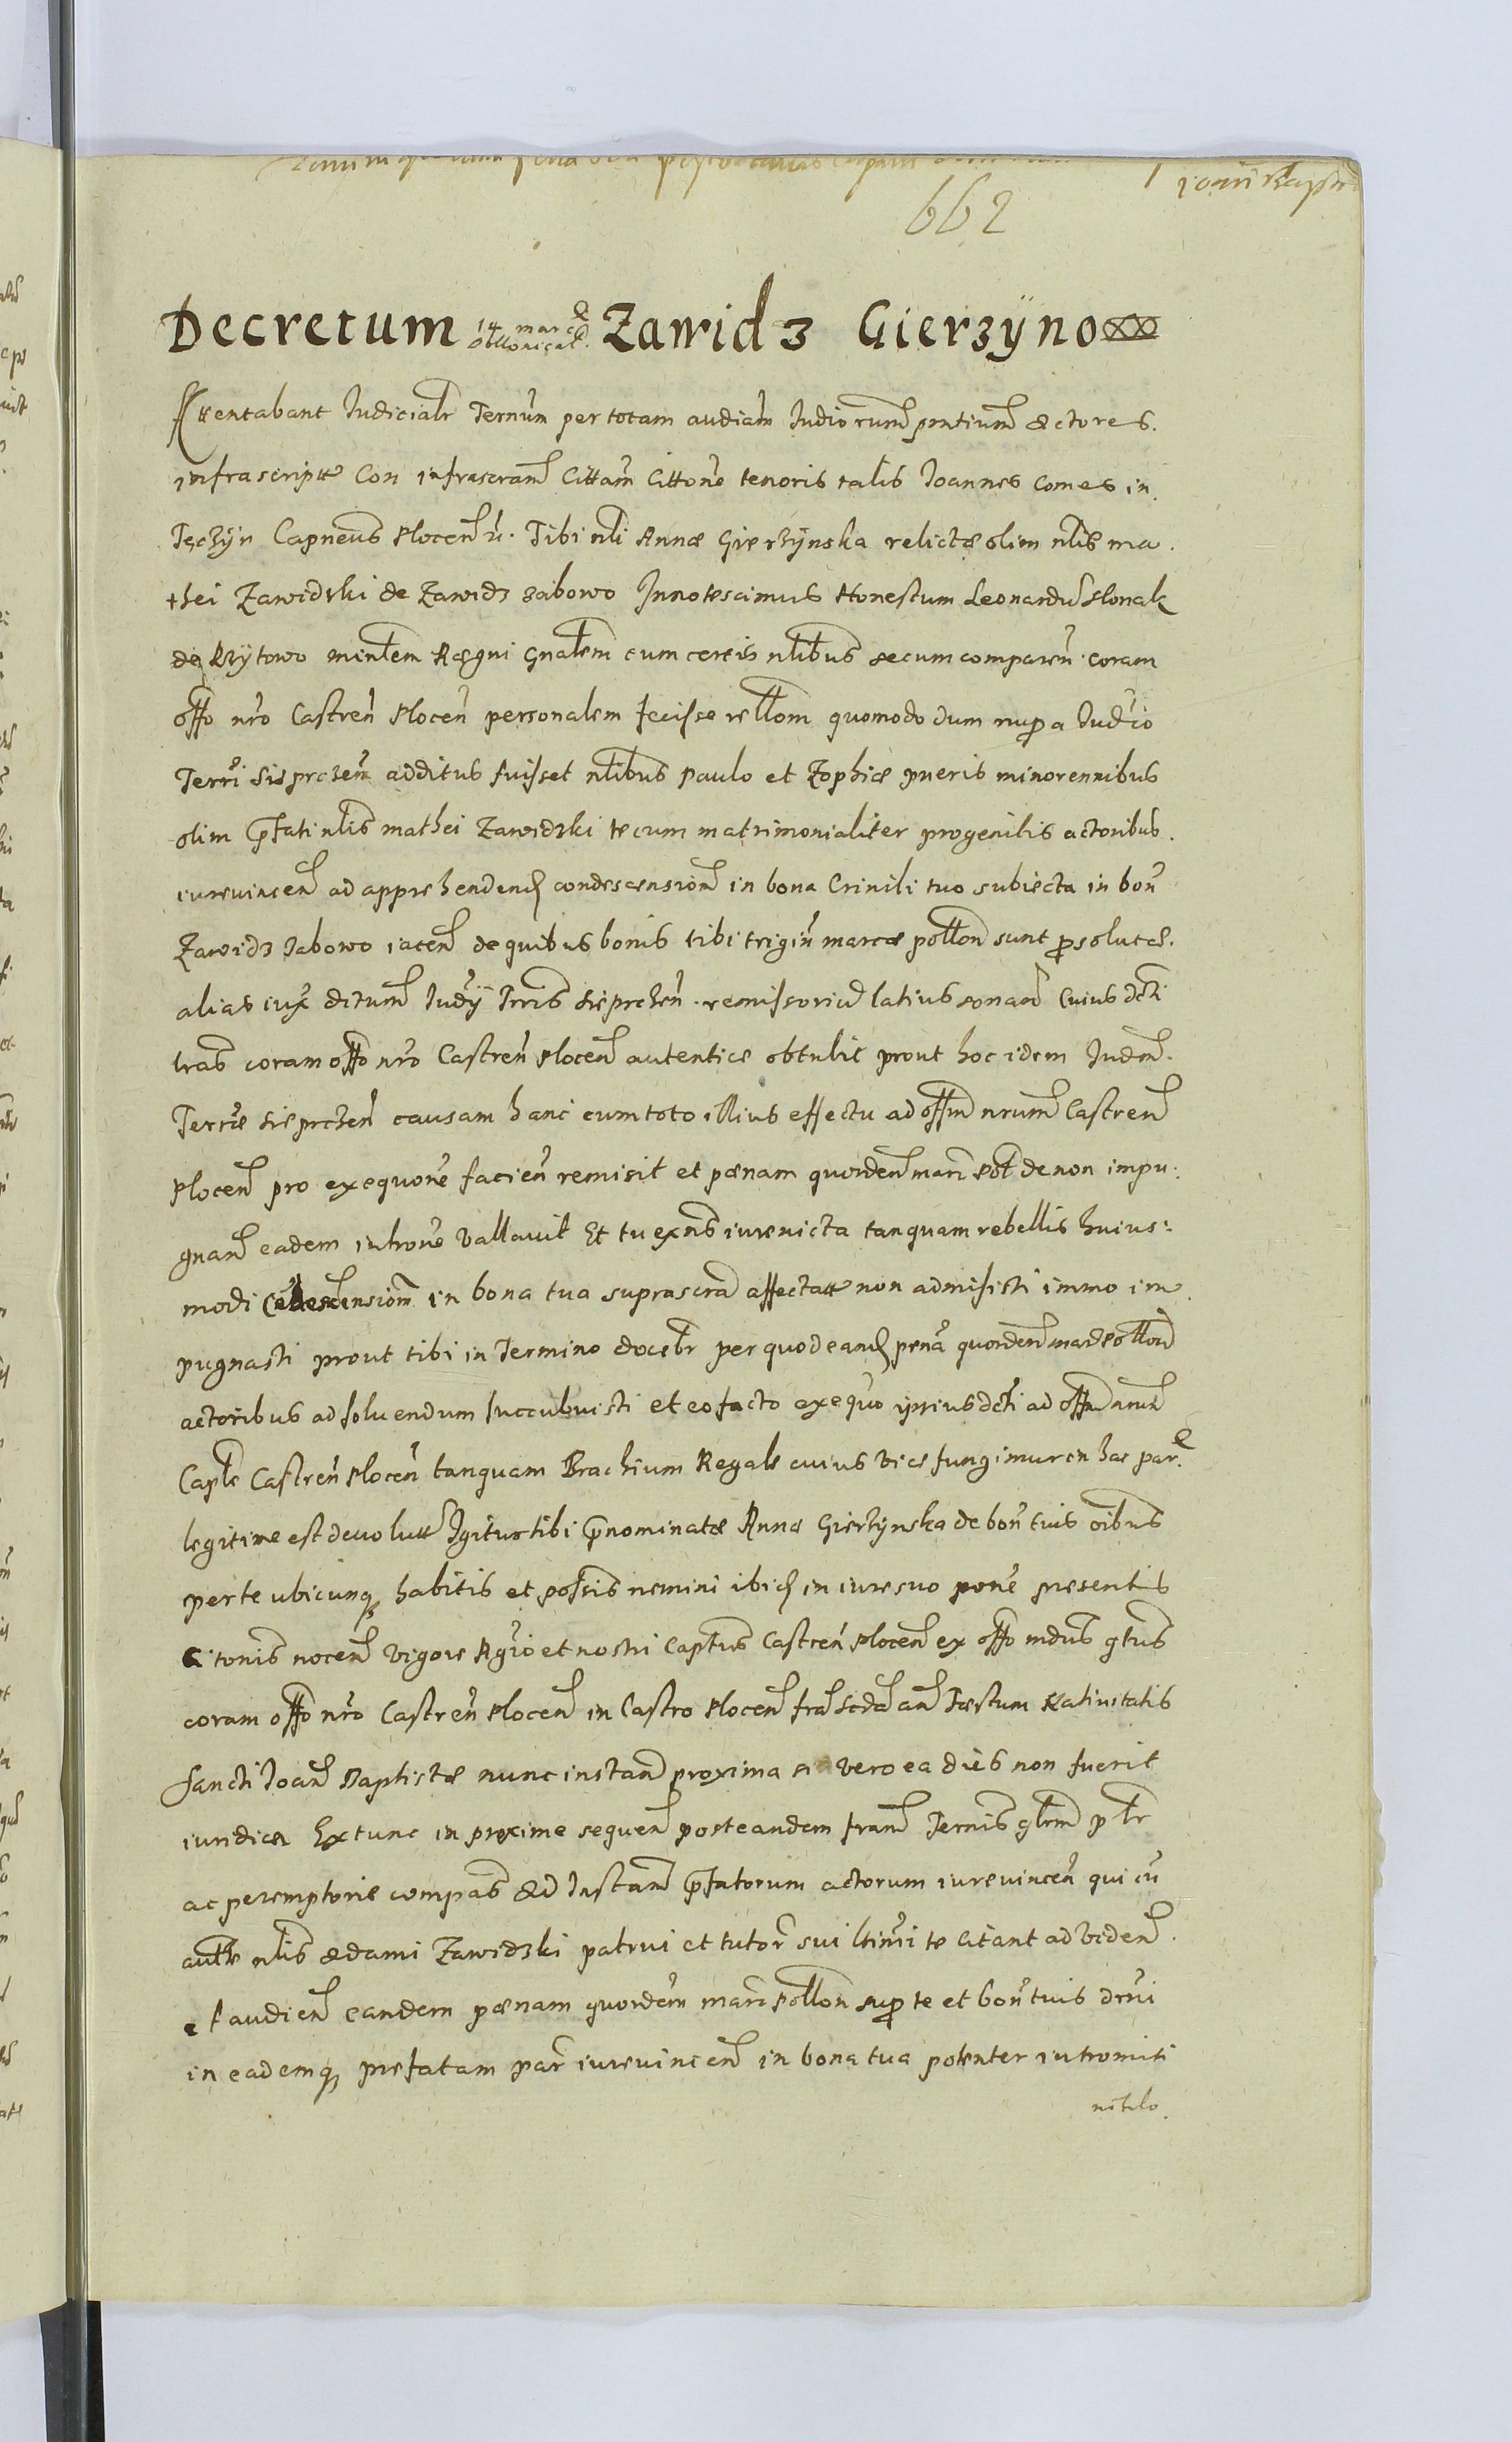 662
Decretum 14 marc Pollonical Zawidz Gierzÿno
Attentabant Judicialr Ternum per totam audiam Judiorum pntium Actores.
infrascriptt Con infrascram Cittam Cittone tenoris talis Joannes Comes in
Tęczÿn Capneus Plocen &. Tibi nli Annæ Gierzÿnska relictæ olim nlis Ma
thei Zawidzki de Zawidz Zabowo Innotescimus Honestum Leonardu Slonak
de Kzÿtowo minlem Regni Gnalem cum certis nlibus secum comparen coram
offo nro Castren Plocen personalem fecisse rellom quomodo dum nup a Judcio
Terri Sieprczen additus fuisset nlibus Paulo et Zophiæ pueris minorennibus
olim pfati nlis Mathei Zawidzki tecum matrimonialiter progenitis actoribus
iurevincen ad apprehenden condescensiom in bona Crinili tuo subiecta in bon
Zawidz Zabowo iacen de quibus bonis tibi trigin marcæ pollon sunt psolutæ.
alias iux dctum Judÿ Trris Sieprczen remissoriu latius sonan Cuius dcti
tras coram offo nro Castren Plocen autentice obtulit prout hoc idem Judm
Terræ Sieprczen causam hanc cum toto illius effectu ad offm nrum Castren
Plocen pro exequone facien remisit et pœnam quorden marc Pol de non impu
gnan eadem introne vallavit Et tu exns iurevicta tanquam rebellis huius
modi condescensiom in bona tua suprascra affectatt non admisisti immo im
pugnasti prout tibi in Termino docebr per quod eand pena quorden marc Pollon
actoribus ad soluendum succubuisti et eo facto exequo ipsius dcti ad offm nrum
Caple Castren Plocen tanquam Brachium Regale cuius vice fungimur in hac par
legitime est devolutt Igitur tibi pnominatæ Annæ Gierzÿnska de bon tuis oibus
per te ubicunq habitis et possis nemini ibid in iure suo pone presentis
Citonis nocen vigore Rgio et nostri Captus Castren Plocen ex offo mdus gtus
coram offo nro Castren Plocen in Castro Plocen fra Scda an Festum Nativitatis
Sancti Joan Baptistæ nunc instan proxima si vero ea dies non fuerit
iuridica Extunc in proxime sequen post eandem fram Ternis
ac peremptorie compas Ad Instam pfatorum actorum iurevincen qui cu
autte nlis Adami Zawidzki patrui et tutor sui ltimi te citant ad viden
et audien eandem pœnam quorden marc Pollon sup te et bon tuis
in eademq prefatam par iurevincen in bona tua potenter intromiti
nihilo